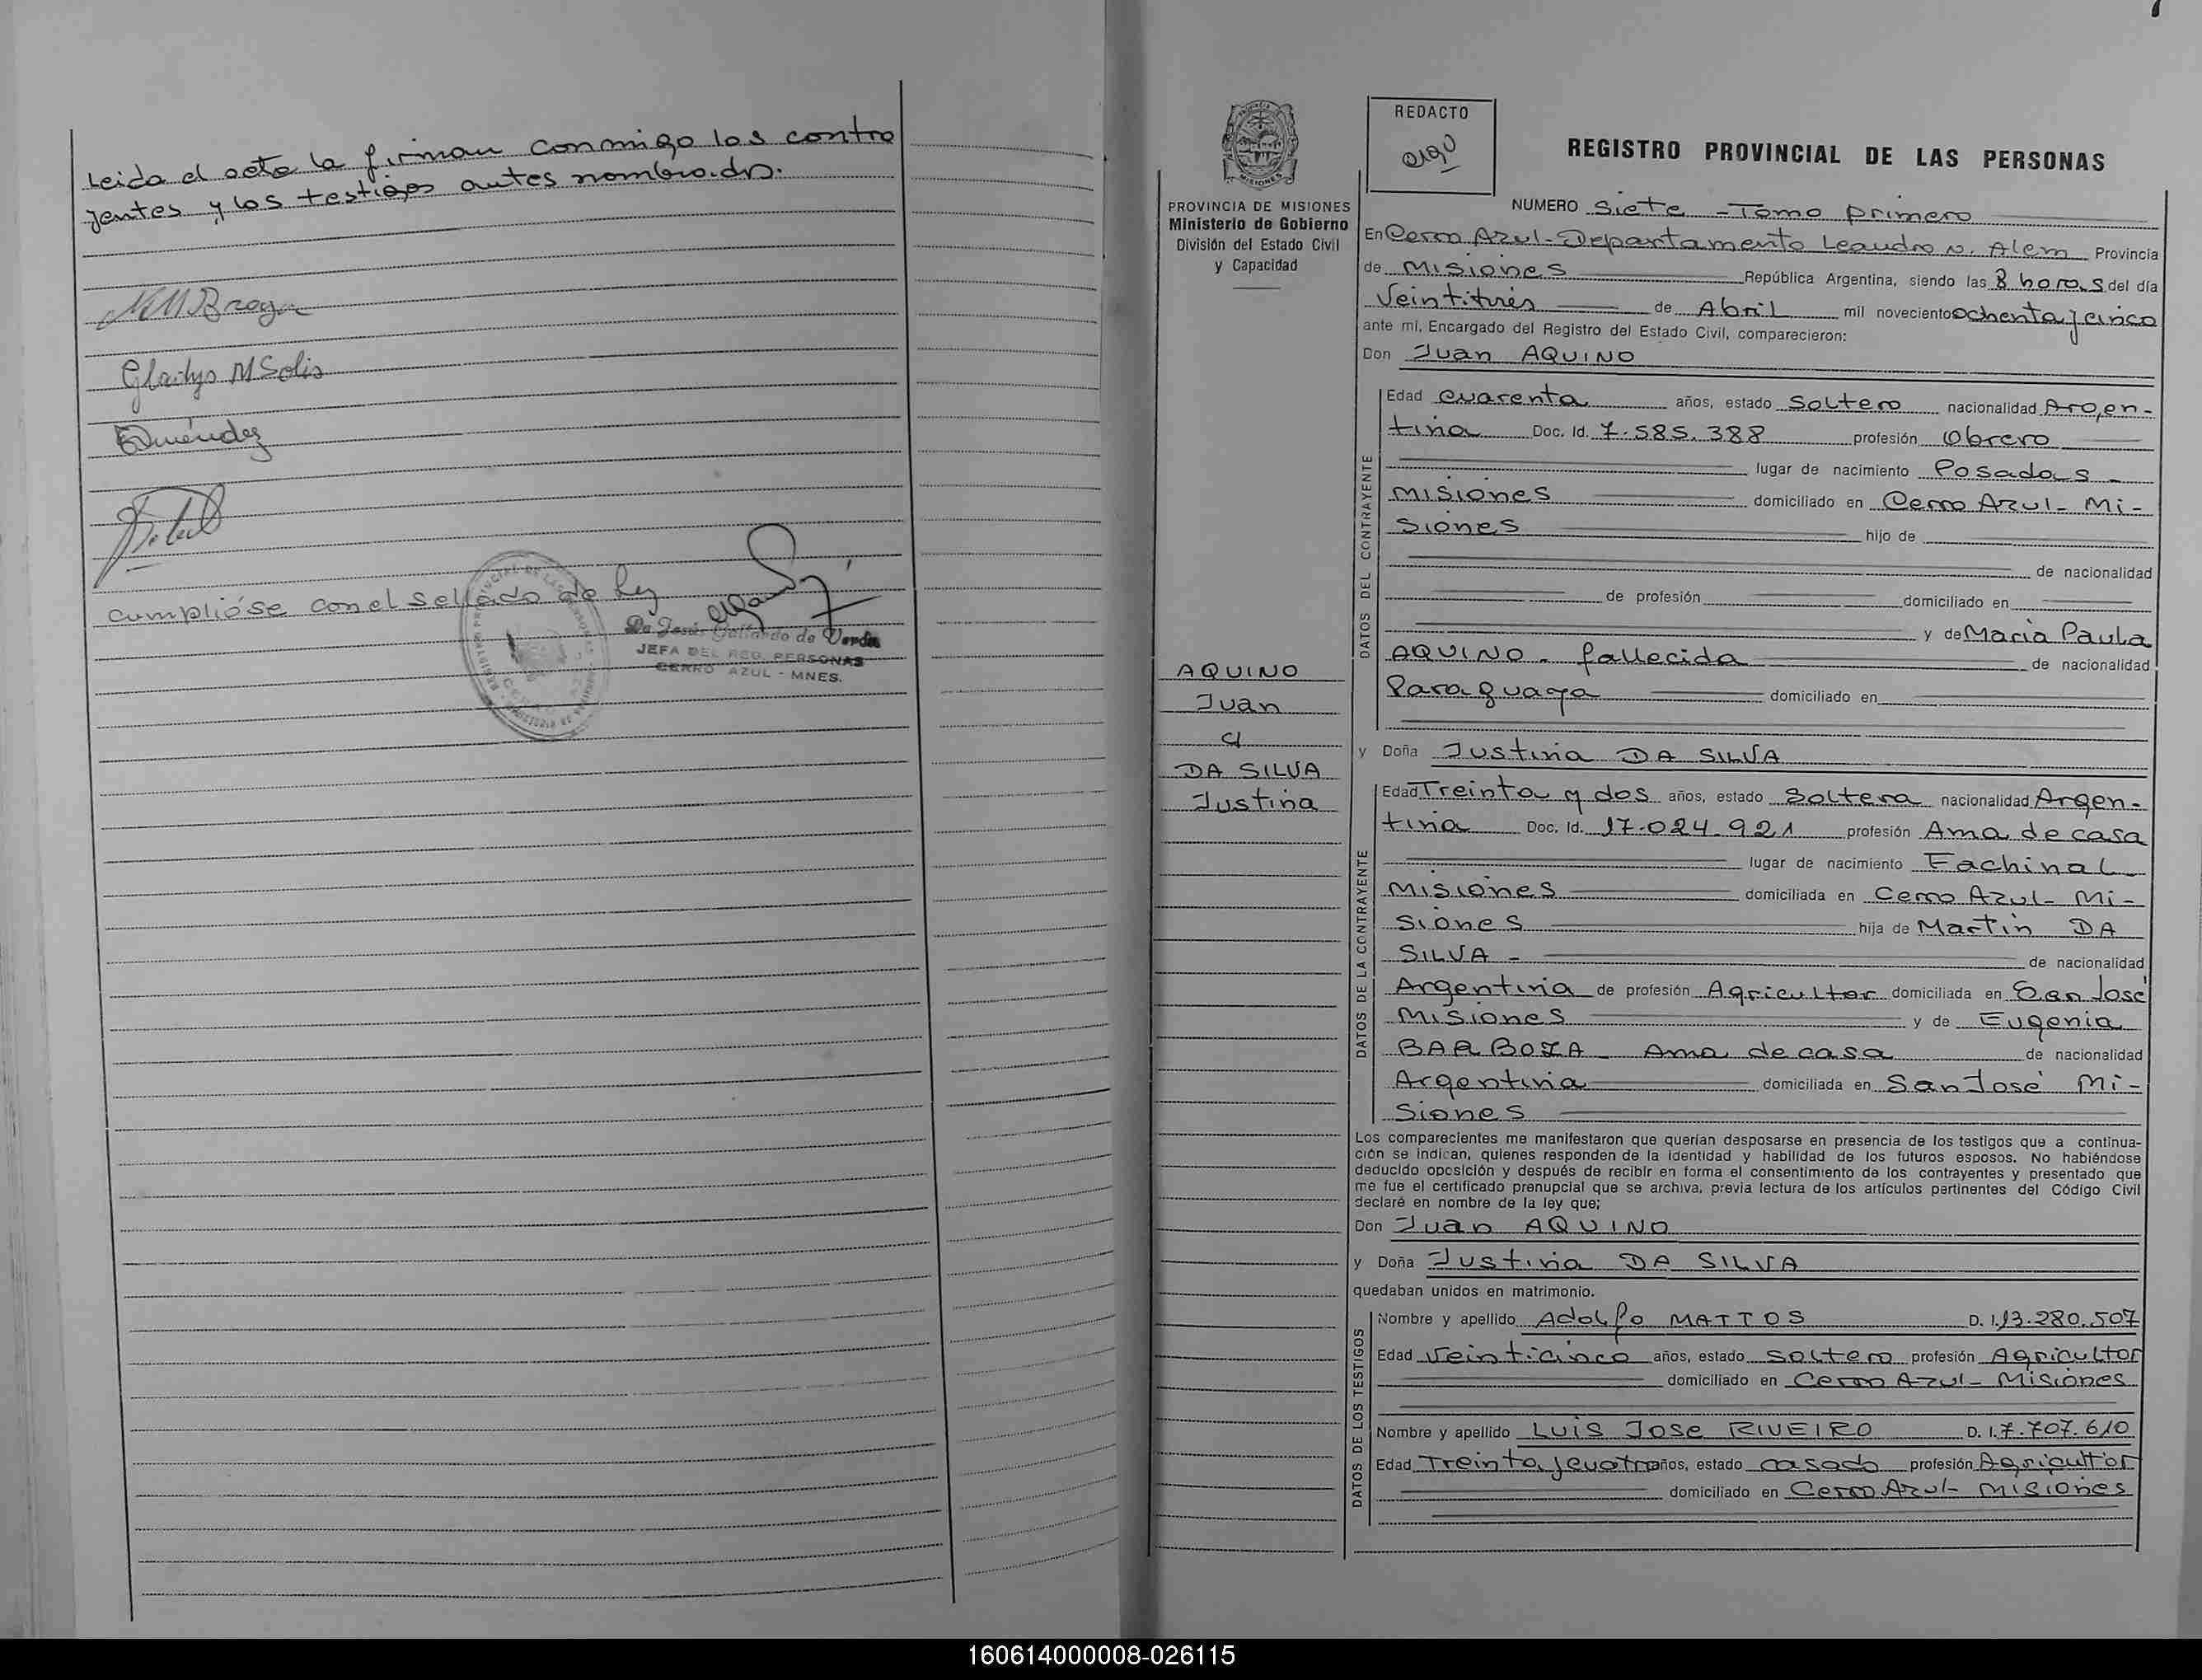 Leida el acta la firman conmigo los contra
yentes y los testigos antes nombrados.
MMBraga
Gladys M Solis
Cumplióse con el sellado de ley
De Jesús Gallardo de Verón
JEFA DEL REG. PERSONAS
CERRO AZUL - MNES.
PROVINCIA DE MISIONES
Ministerio de Gobierno
División del Estado Civil
y Capacidad
AQUINO
Juan
c/
DA SILVA
Justina
REDACTO
REGISTRO PROVINCIAL DE LAS PERSONAS
NUMERO Siete - Tomo primero
En Cerro Azul - Departamento Leandro N. Alem Provincia
de Misiones República Argentina, siendo las 8 horas del día
Veintitrés de Abril mil novecientos ochenta y cinco
ante mí, Encargado del Registro del Estado Civil, comparecieron:
Don Juan AQUINO
DATOS DEL CONTRAYENTE
Edad Cuarenta años, estado Soltero nacionalidad Argen-
tina Doc. Id. 7.585.388 profesión Obrero
lugar de nacimiento Posadas -
Misiones domiciliado en Cerro Azul - Mi-
siones hijo de
de nacionalidad
de profesión domiciliado en
y de María Paula
AQUINO - fallecida de nacionalidad
Paraguaya domiciliado en
y Doña Justina DA SILVA
DATOS DE LA CONTRAYENTE
Edad Treinta y dos años, estado Soltera nacionalidad Argen-
tina Doc. Id. 17.024.921 profesión Ama de casa
lugar de nacimiento Fachinal
Misiones domiciliada en Cerro Azul - Mi-
siones hija de Martín DA
SILVA - de nacionalidad
Argentina de profesión Agricultor domiciliada en San José
Misiones y de Eugenia
BARBOZA - Ama de casa de nacionalidad
Argentina domiciliada en San José Mi-
siones
Los comparecientes me manifestaron que querían desposarse en presencia de los testigos que a continua-
ción se indican, quienes responden de la identidad y habilidad de los futuros esposos. No habiéndose
deducido oposición y después de recibir en forma el consentimiento de los contrayentes y presentado que
me fue el certificado prenupcial que se archiva, previa lectura de los artículos pertinentes del Código Civil
declaré en nombre de la ley que;
Don Juan AQUINO
y Doña Justina DA SILVA
quedaban unidos en matrimonio.
DATOS DE LOS TESTIGOS
Nombre y apellido Adolfo MATTOS D. I. 13.280.507
Edad Veinticinco años, estado soltero profesión Agricultor
domiciliado en Cerro Azul - Misiones
Nombre y apellido Luis Jose RIVEIRO D. I. 7.707.610
Edad Treinta y cuatro años, estado casado profesión Agricultor
domiciliado en Cerro Azul - Misiones
160614000008-026115